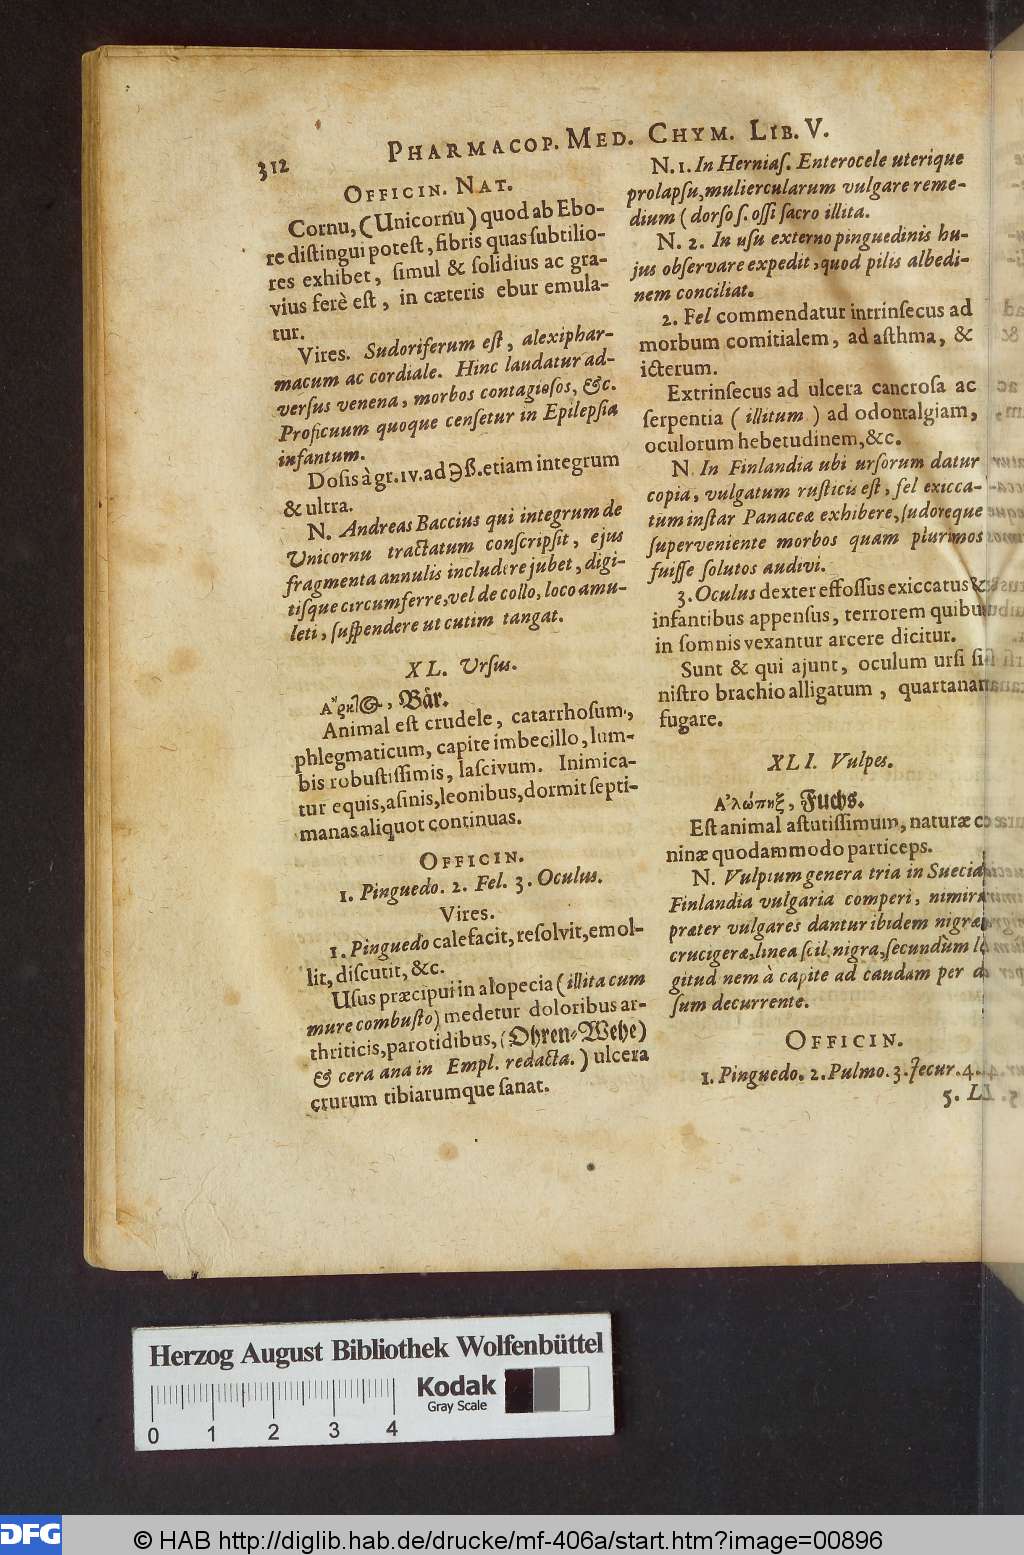 312
PHARMACOP. MED. CHYM. LIB. V.
OFFICIN. NAT.
Cornu, (Unicornu) quod ab Ebo-
re distingui potest, fibris quas subtilio-
res exhibet, simul & solidius ac gra-
vius ferè est, in cæteris ebur emula-
tur.
Vires. Sudoriferum est, alexiphar-
macum ac cordiale. Hinc laudatur ad-
versus venena, morbos contagiosos, &c.
Proficuum quoque censetur in Epilepsia
infantum.
Dosis à gr. IV. ad ℈ß. etiam integrum
& ultra.
N. Andreas Baccius qui integrum de
Unicornu tractatum conscripsit, ejus
fragmenta annulis includere jubet, digi-
tisque circumferre, vel de collo, loco amu-
leti, suspendere ut cutim tangat.
XL. Ursus.
Ἄρκ〈τ〉ος, Bär.
Animal est crudele, catarrhosum,
phlegmaticum, capite imbecillo, lum-
bis robustissimis, lascivum. Inimica-
tur equis, asinis, leonibus, dormit septi-
manas aliquot continuas.
OFFICIN.
1. Pinguedo. 2. Fel. 3. Oculus.
Vires.
1. Pinguedo calefacit, resolvit, emol-
lit, discutit, &c.
Usus præcipui in alopecia (illita cum
mure combusto) medetur doloribus ar-
thriticis, parotidibus, (Ohren-Wehe)
& cera ana in Empl. redacta.) ulcera
crurum tibiarumque sanat.
N. 1. In Hernias. Enterocele uterique
prolapsu, muliercularum vulgare reme-
dium (dorso s. ossi sacro illita.
N. 2. In usu externo pinguedinis hu-
jus observare expedit, quod pilis albedi-
nem conciliat.
2. Fel commendatur intrinsecus ad
morbum comitialem, ad asthma, &
icterum.
Extrinsecus ad ulcera cancrosa ac
serpentia (illitum) ad odontalgiam,
oculorum hebetudinem, &c.
N. In Finlandia ubi ursorum datur
copia, vulgatum rusticis est, fel exicca-
tum instar Panaceæ exhibere, sudoreque
superveniente morbos quam plurimos
fuisse solutos audivi.
3. Oculus dexter effossus exiccatus &
infantibus appensus, terrorem quibu
in somnis vexantur arcere dicitur.
Sunt & qui ajunt, oculum ursi si
nistro brachio alligatum, quartanam
fugare.
XLI. Vulpes.
Ἀλώπηξ, Fuchs.
Est animal astutissimum, naturæ c
ninæ quodammodo particeps.
N. Vulpium genera tria in Suecia
Finlandia vulgaria comperi, nimir
præter vulgares dantur ibidem nigræ
crucigeræ, linea scil. nigra, secundùm lo
gitud nem à capite ad caudam per d
sum decurrente.
OFFICIN.
1. Pinguedo. 2. Pulmo. 3. Jecur. 4.
5. L
Herzog August Bibliothek Wolfenbüttel
Kodak
Gray Scale
0 1 2 3 4
DFG
© HAB http://diglib.hab.de/drucke/mf-406a/start.htm?image=00896